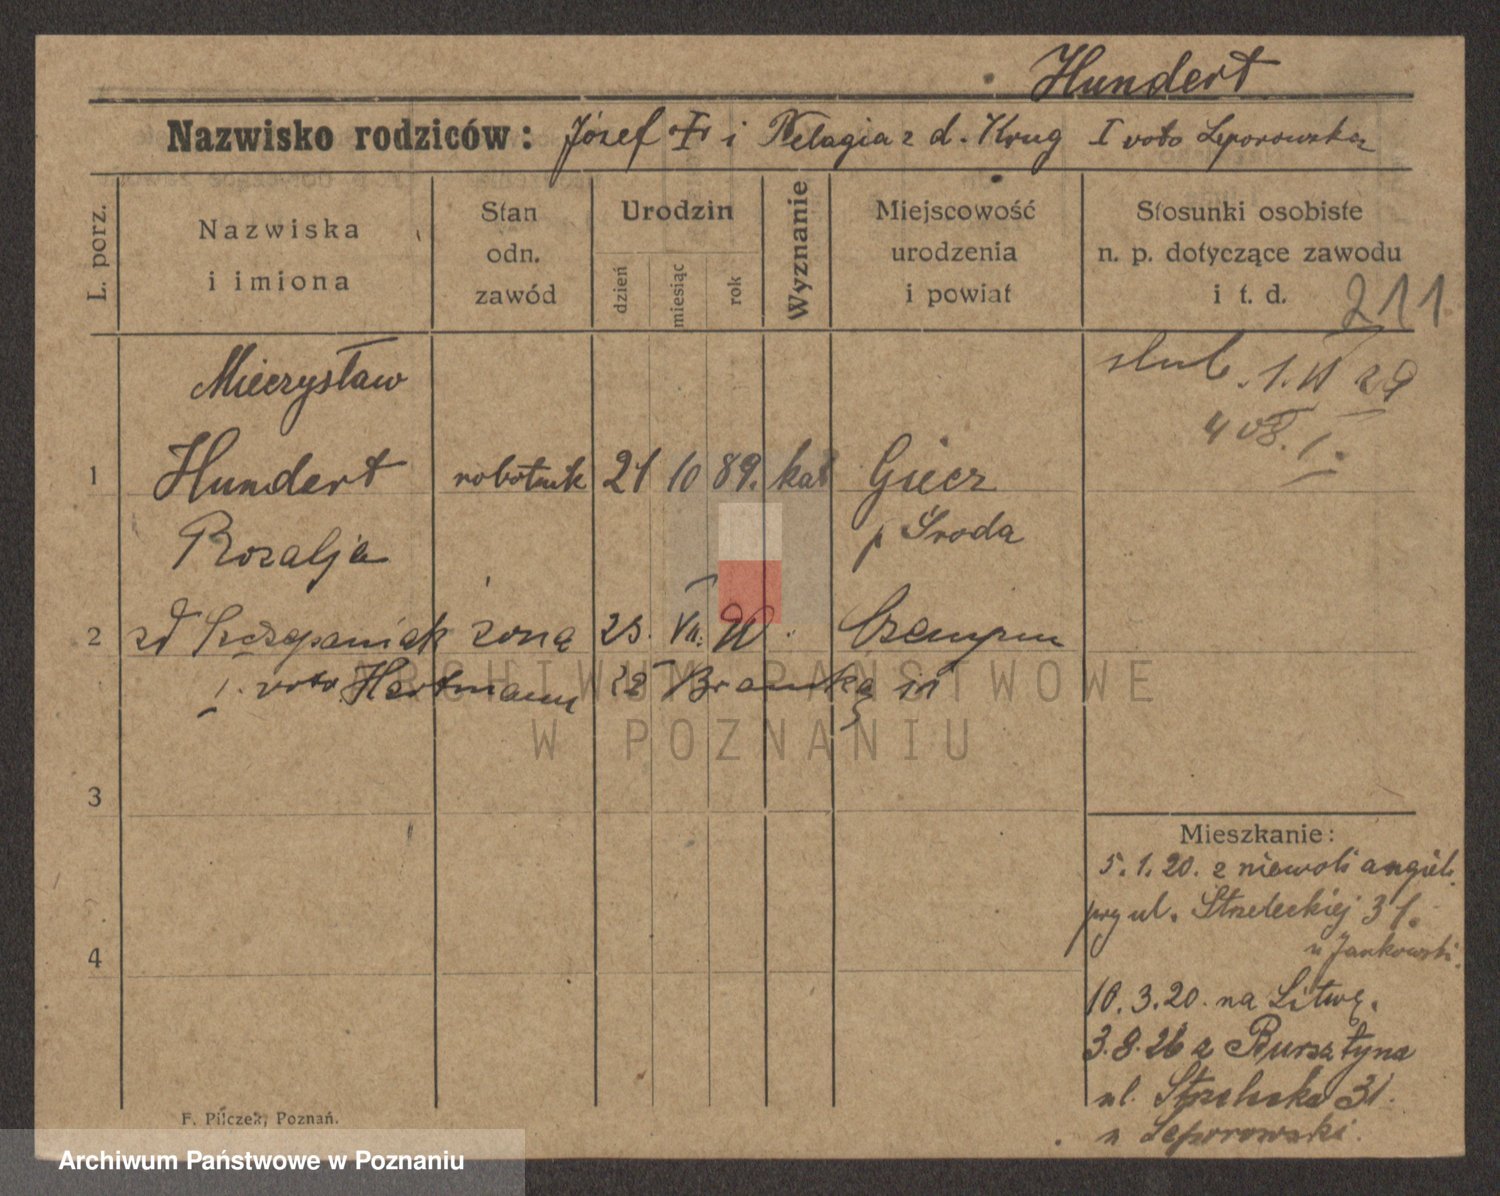 Hundert
Nazwisko rodziców: Józef H i Pelagia z d. Krug I voto Leporowska
L. porz.
Nazwiska
i imiona
Stan
odn.
zawód
Urodzin
dzień
miesiąc
rok
Wyznanie
Miejscowość
urodzenia
i powiat
Stosunki osobiste
n. p. dotyczące zawodu
i t. d.
211
Mieczysław
ślub. 1. VI 29
1 Hundert robotnik 21 10 89. kat Giecz
Rozalja p Środa
2 zd Szczepaniak żona 23. VII. Czempiń
1. voto Hartmann
3
4
Mieszkanie:
5.1.20. z niewoli angiels.
przy ul. Strzeleckiej 31.
u Jankowski.
10.3.20. na Litwę.
3.8.26 z Bursztyna
ul. Strzelecka 31.
u Leporowski.
F. Pilczek, Poznań.
ARCHIWUM PAŃSTWOWE
W POZNANIU
Archiwum Państwowe w Poznaniu